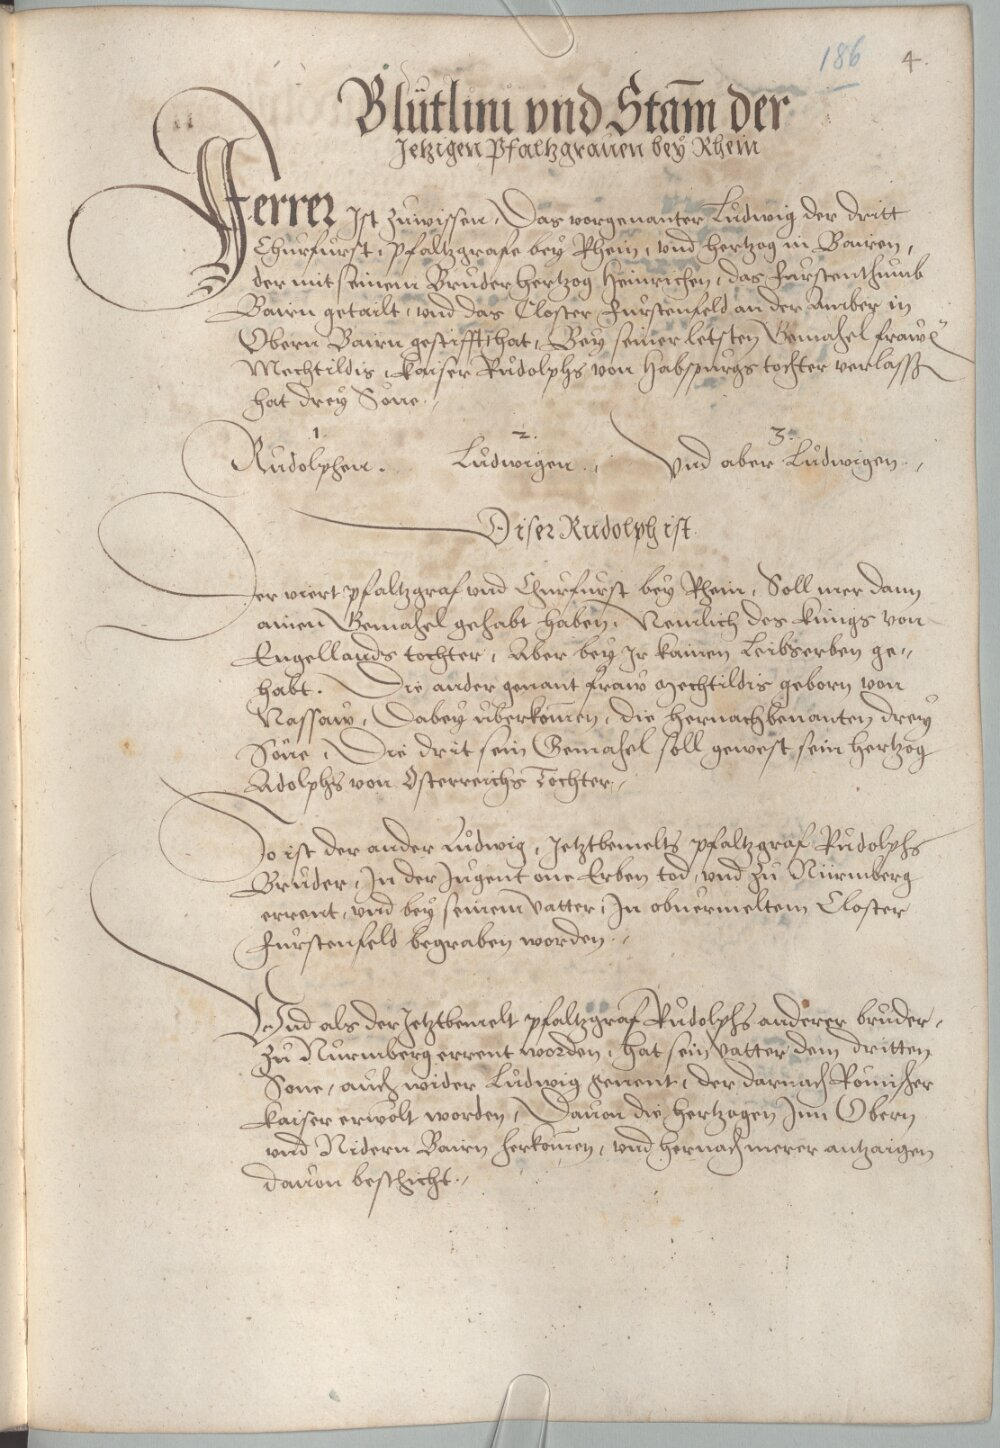 186 4.
Blůtlini vnd Stam̄ der
Jetzigen Pfaltzgrauen bey Rhein
Ferrer Ist zuwissen, Das vorgenanter Ludwig der dritt
Churfurst, Pfaltzgrafe bey Rhein, vnd hertzog in Bairen,
der mit seinem Bruder hertzog Heinrichen, das furstenthumb
Bairn getailt, vnd das Closter furstenfeld an der Amber in
Obern Bairn gestifft hat, Bey seiner letsten Gemahel frawē
Mechtildis, kaiser Rudolphs von Habspurgs tochter verlassen
hat drey Söne.
1 2. 3.
Rudolphen. Ludwigen. Vnd aber Ludwigen.
Diser Rudolph ist
Der viert pfaltzgraf vnd Churfurst bey Rhein, Soll mer dann
ainen Gemahel gehabt haben, Nemlich des kunigs von
Engellands tochter, Aber bey Ir kainen Leibserben ge-
habt. Die ander genant fraw Mechtildis geborn von
Nassaw, Dabey uberkom̄en, die hernachbenanten drey
Söne, Die drit sein Gemahel soll gewest sein hertzog
Adolphs von Österreichs Tochter.
So ist der ander Ludwig, Jetztbemelts pfaltzgraf Rudolphs
Bruder, In der Jugent one Erben tod, vnd zu Nürmberg
errent, vnd bey seinem vatter, In obuermeltem Closter
furstenfeld begraben worden.
Vnd als der Jetztbemelt pfaltzgraf Rudolphs anderer bruder,
zu Nurmberg errent worden, hat sein vatter dem dritten
Sone, auch wider Ludwig genent, der darnach Römischer
kaiser erwölt worden, Dauon die hertzogen Inn Obern
vnd Nidern Bairn herkom̄en, vnd hernach merer antzaigen
dauon beschicht.